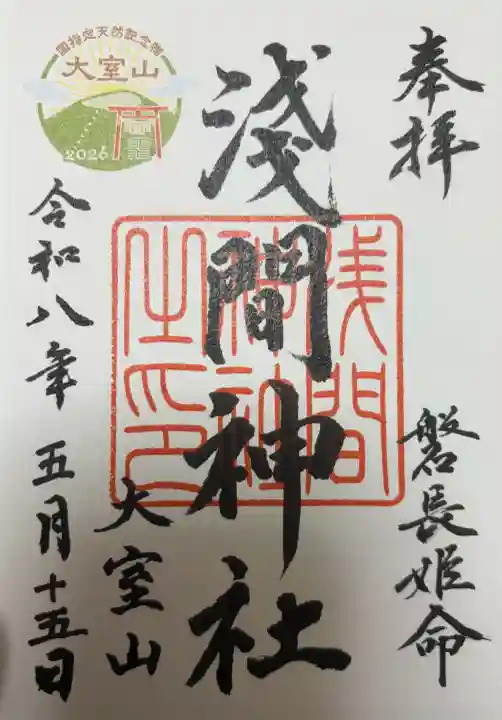 奉拝
磐長姫命
浅間神社
浅間神社之印
大室山
令和八年五月十五日
国指定天然記念物
大室山
2026